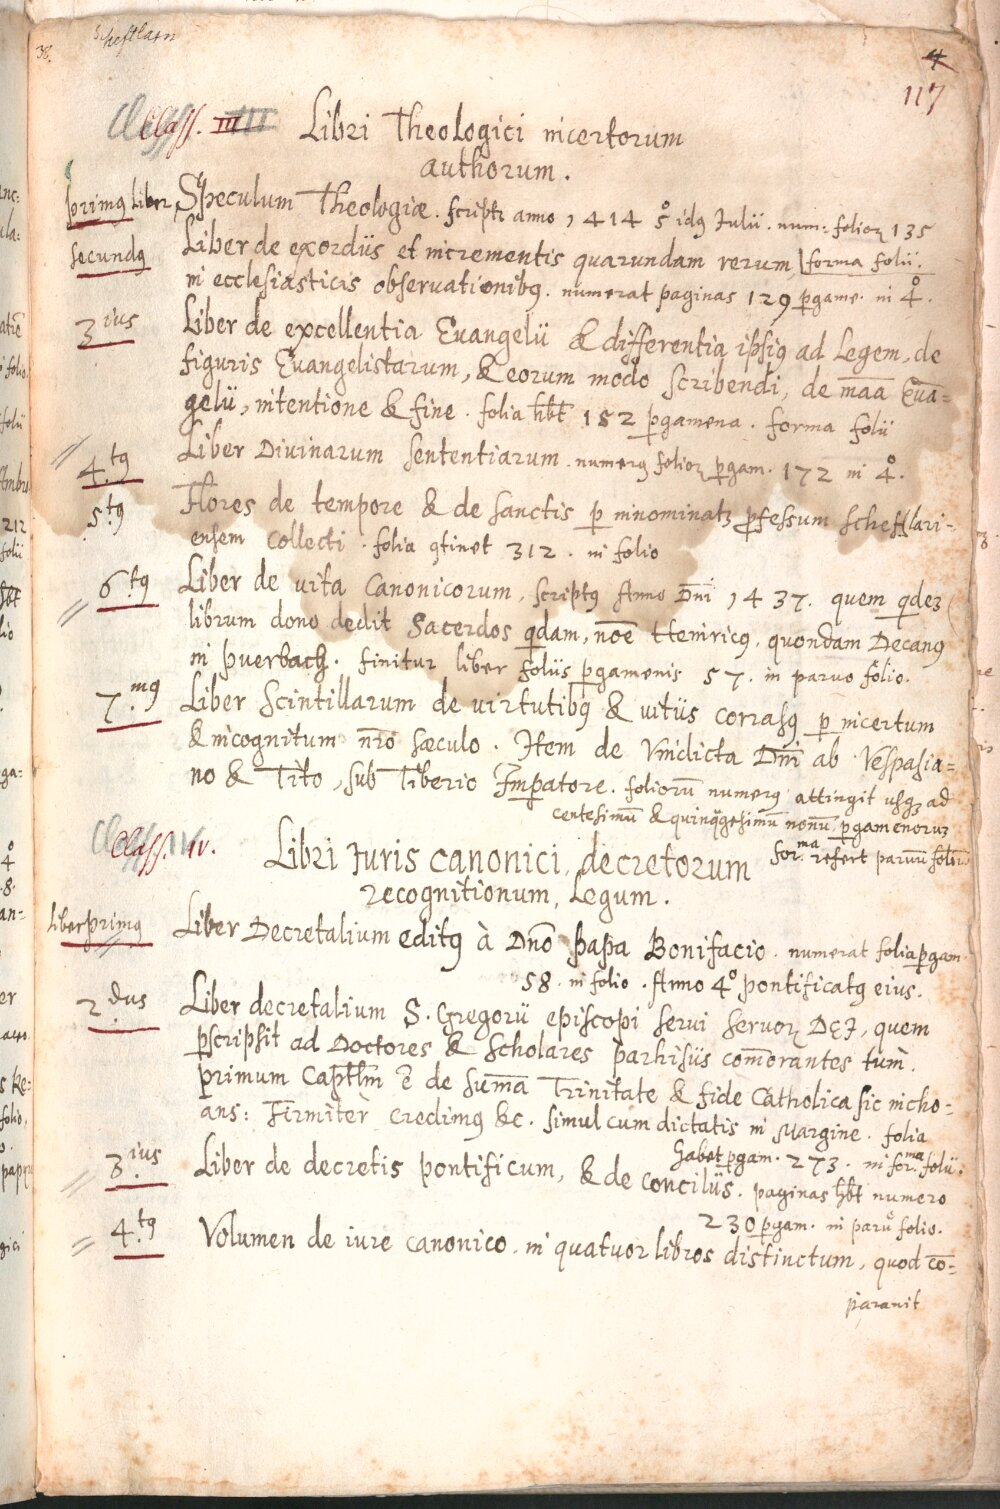 Scheftlarn
38.
4
117
Class. III
Libri Theologici incertorum
authorum.
primq liber Speculum Theologiæ. script9 anno 1414 5° id9 Iulii. num: folior 135
secundq Liber de exordiis et incrementis quarundam rerum forma folii.
in ecclesiasticis observationib9. numerat paginas 129 pgame. in 4°.
3ius Liber de excellentia Euangelii & differentia ipsi9 ad Legem, de
figuris Euangelistarum, & eorum modo scribendi, de maa Eua=
gelii, intentione & fine. folia hbt 152 pgamena. forma folii
4.t9 Liber Diuinarum sententiarum. numer9 folior pgam. 172 in 4°.
5.t9 Flores de tempore & de sanctis p innominatz pfessum scheftlari-
ensem collecti. folia 9tinet 312. in folio
6t9 Liber de vita Canonicorum, script9 Anno Dni 1437. quem qdez
librum dono dedit Sacerdos qdam, noe Heinric9, quondam Decan9
in puerbach. finitur liber foliis pgamenis 57. in paruo folio.
7.m9 Liber Scintillarum de virtutib9 & vitiis corras9 p incertum
& incognitum nro sæculo. Item de vindicta Dni ab Vespasia=
no & Tito, sub Tiberio Impatore. foliorū numer9 attingit usqz ad
centesimū & quinqgesimū nonū pgamenoruz
for.ma refert paruū foliū
Class. IV.
Libri Iuris canonici, decretorum
recognitionum, Legum.
liber primq Liber Decretalium edit9 à Dno papa Bonifacio. numerat folia pgam.
58. in folio. Anno 4° pontificat9 eius.
2.dus Liber decretalium S. Gregorii episcopi servi servor DEI, quem
pscripsit ad Doctores & scholares parhisiis comorantes tum.
primum Captlm ē de suma Trinitate & fide Catholica sic incho=
ans: Firmiter credim9 &c. simul cum dictatis in Margine. folia
habet pgam. 273. in for.ma folii.
3.ius Liber de decretis pontificum, & de conciliis. paginas hbt numero
230 pgam. in paruo folio.
4.t9 Volumen de iure canonico. in quatuor libros distinctum, quod co=
parauit